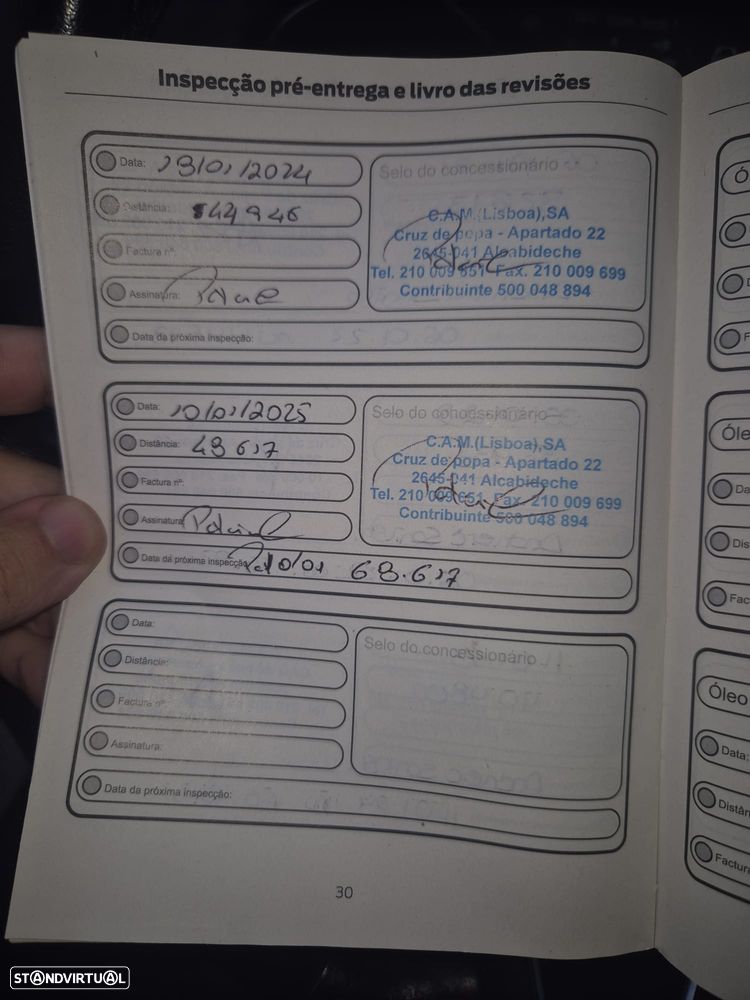 Inspecção pré-entrega e livro das revisões
Data: 19/01/2024
Selo do concessionário
Distância: 44946
Factura nº:
Assinatura:
C.A.M.(Lisboa),SA
Cruz de popa - Apartado 22
2645-041 Alcabideche
Tel. 210 009 651 Fax. 210 009 699
Contribuinte 500 048 894
Data da próxima inspecção:
Data: 10/01/2025
Selo do concessionário
Distância: 48617
Factura nº:
Assinatura:
C.A.M.(Lisboa),SA
Cruz de popa - Apartado 22
2645-041 Alcabideche
Tel. 210 009 651 Fax. 210 009 699
Contribuinte 500 048 894
Data da próxima inspecção: 10/01 68.617
Data:
Selo do concessionário
Distância:
Factura nº:
Assinatura:
Data da próxima inspecção:
30
Óle
Da
Dis
Fac
Óleo
Data:
Distân
Factura
STANDVIRTUAL